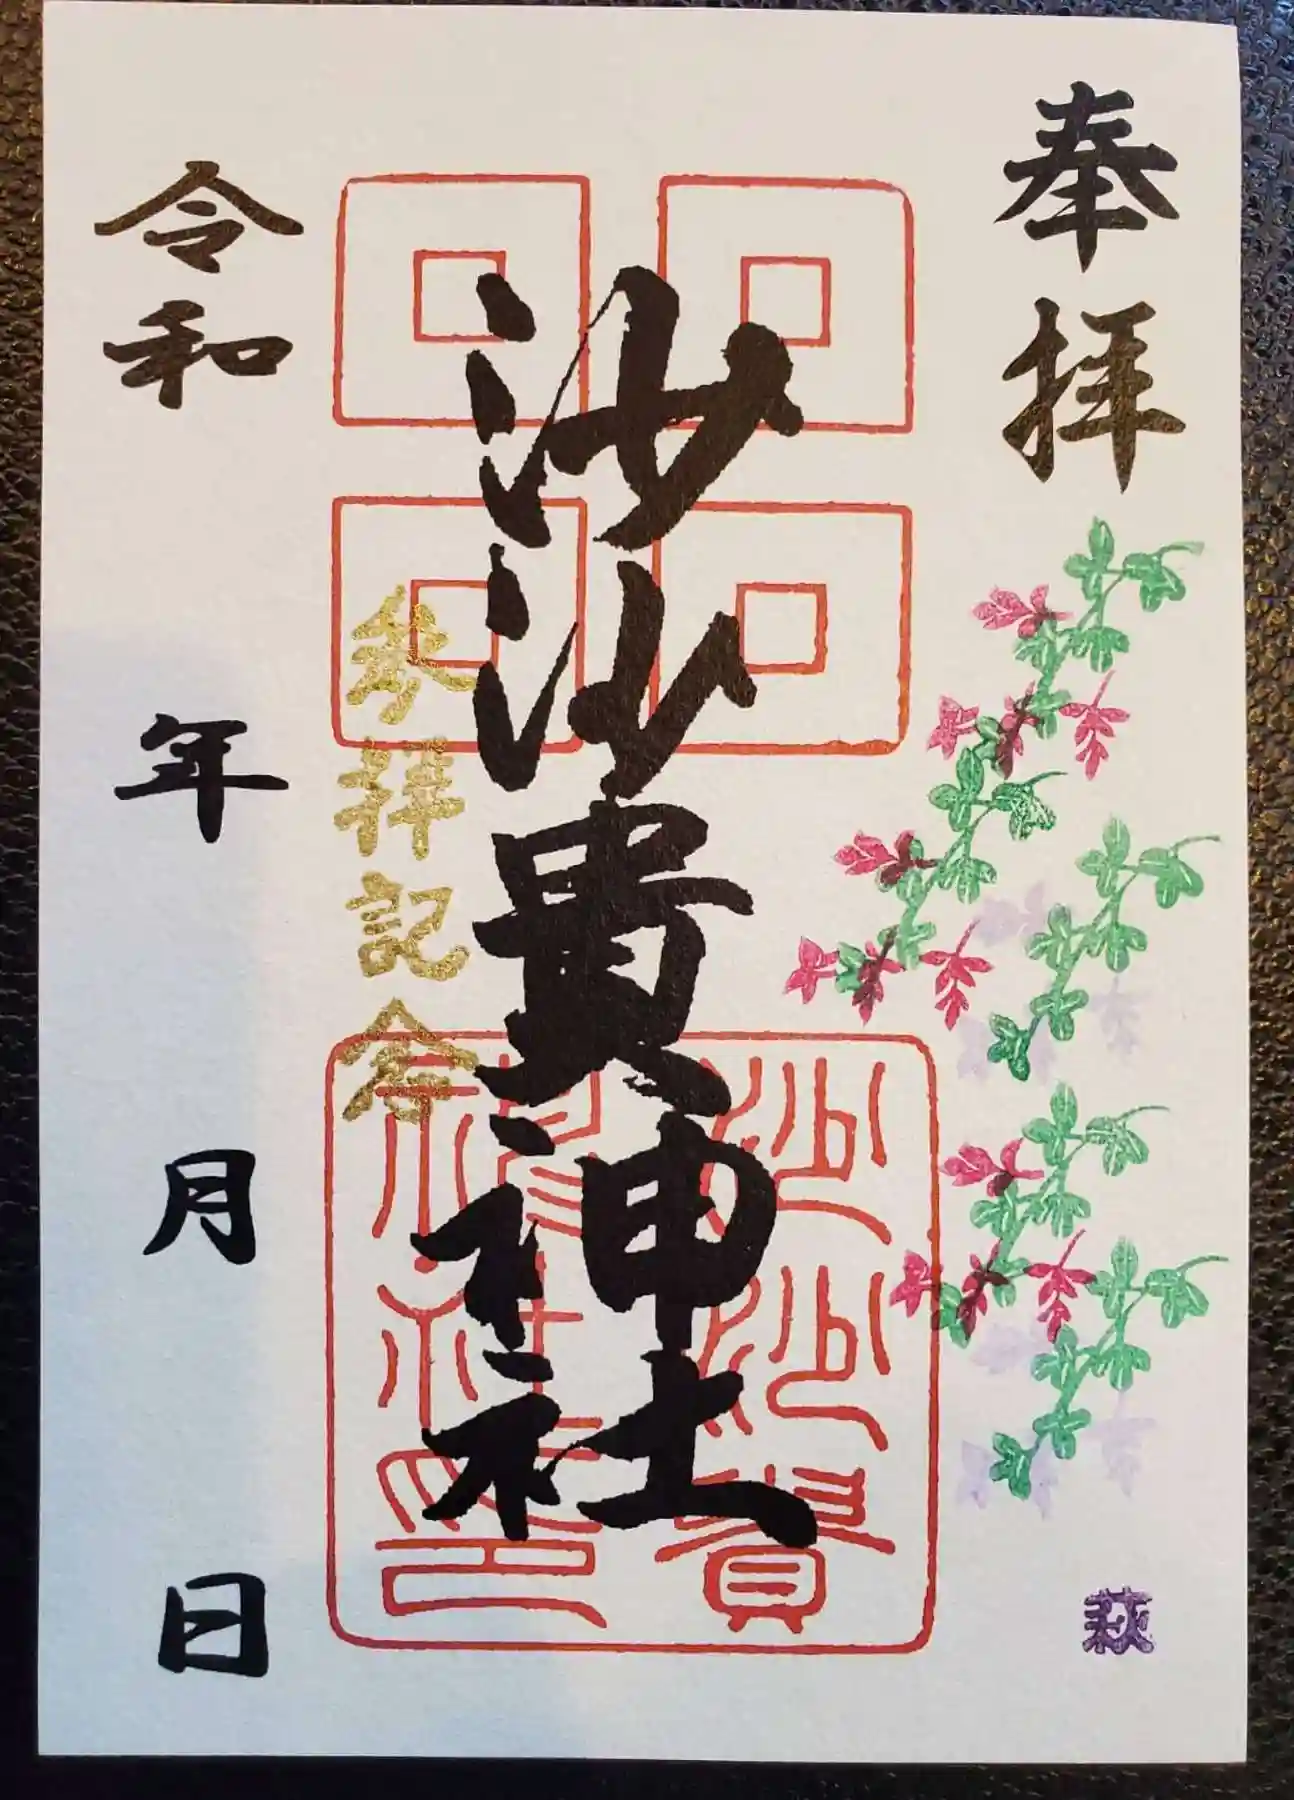 奉拝
萩
沙沙貴神社
沙沙貴
神社印
参拝記念
令和 年 月 日